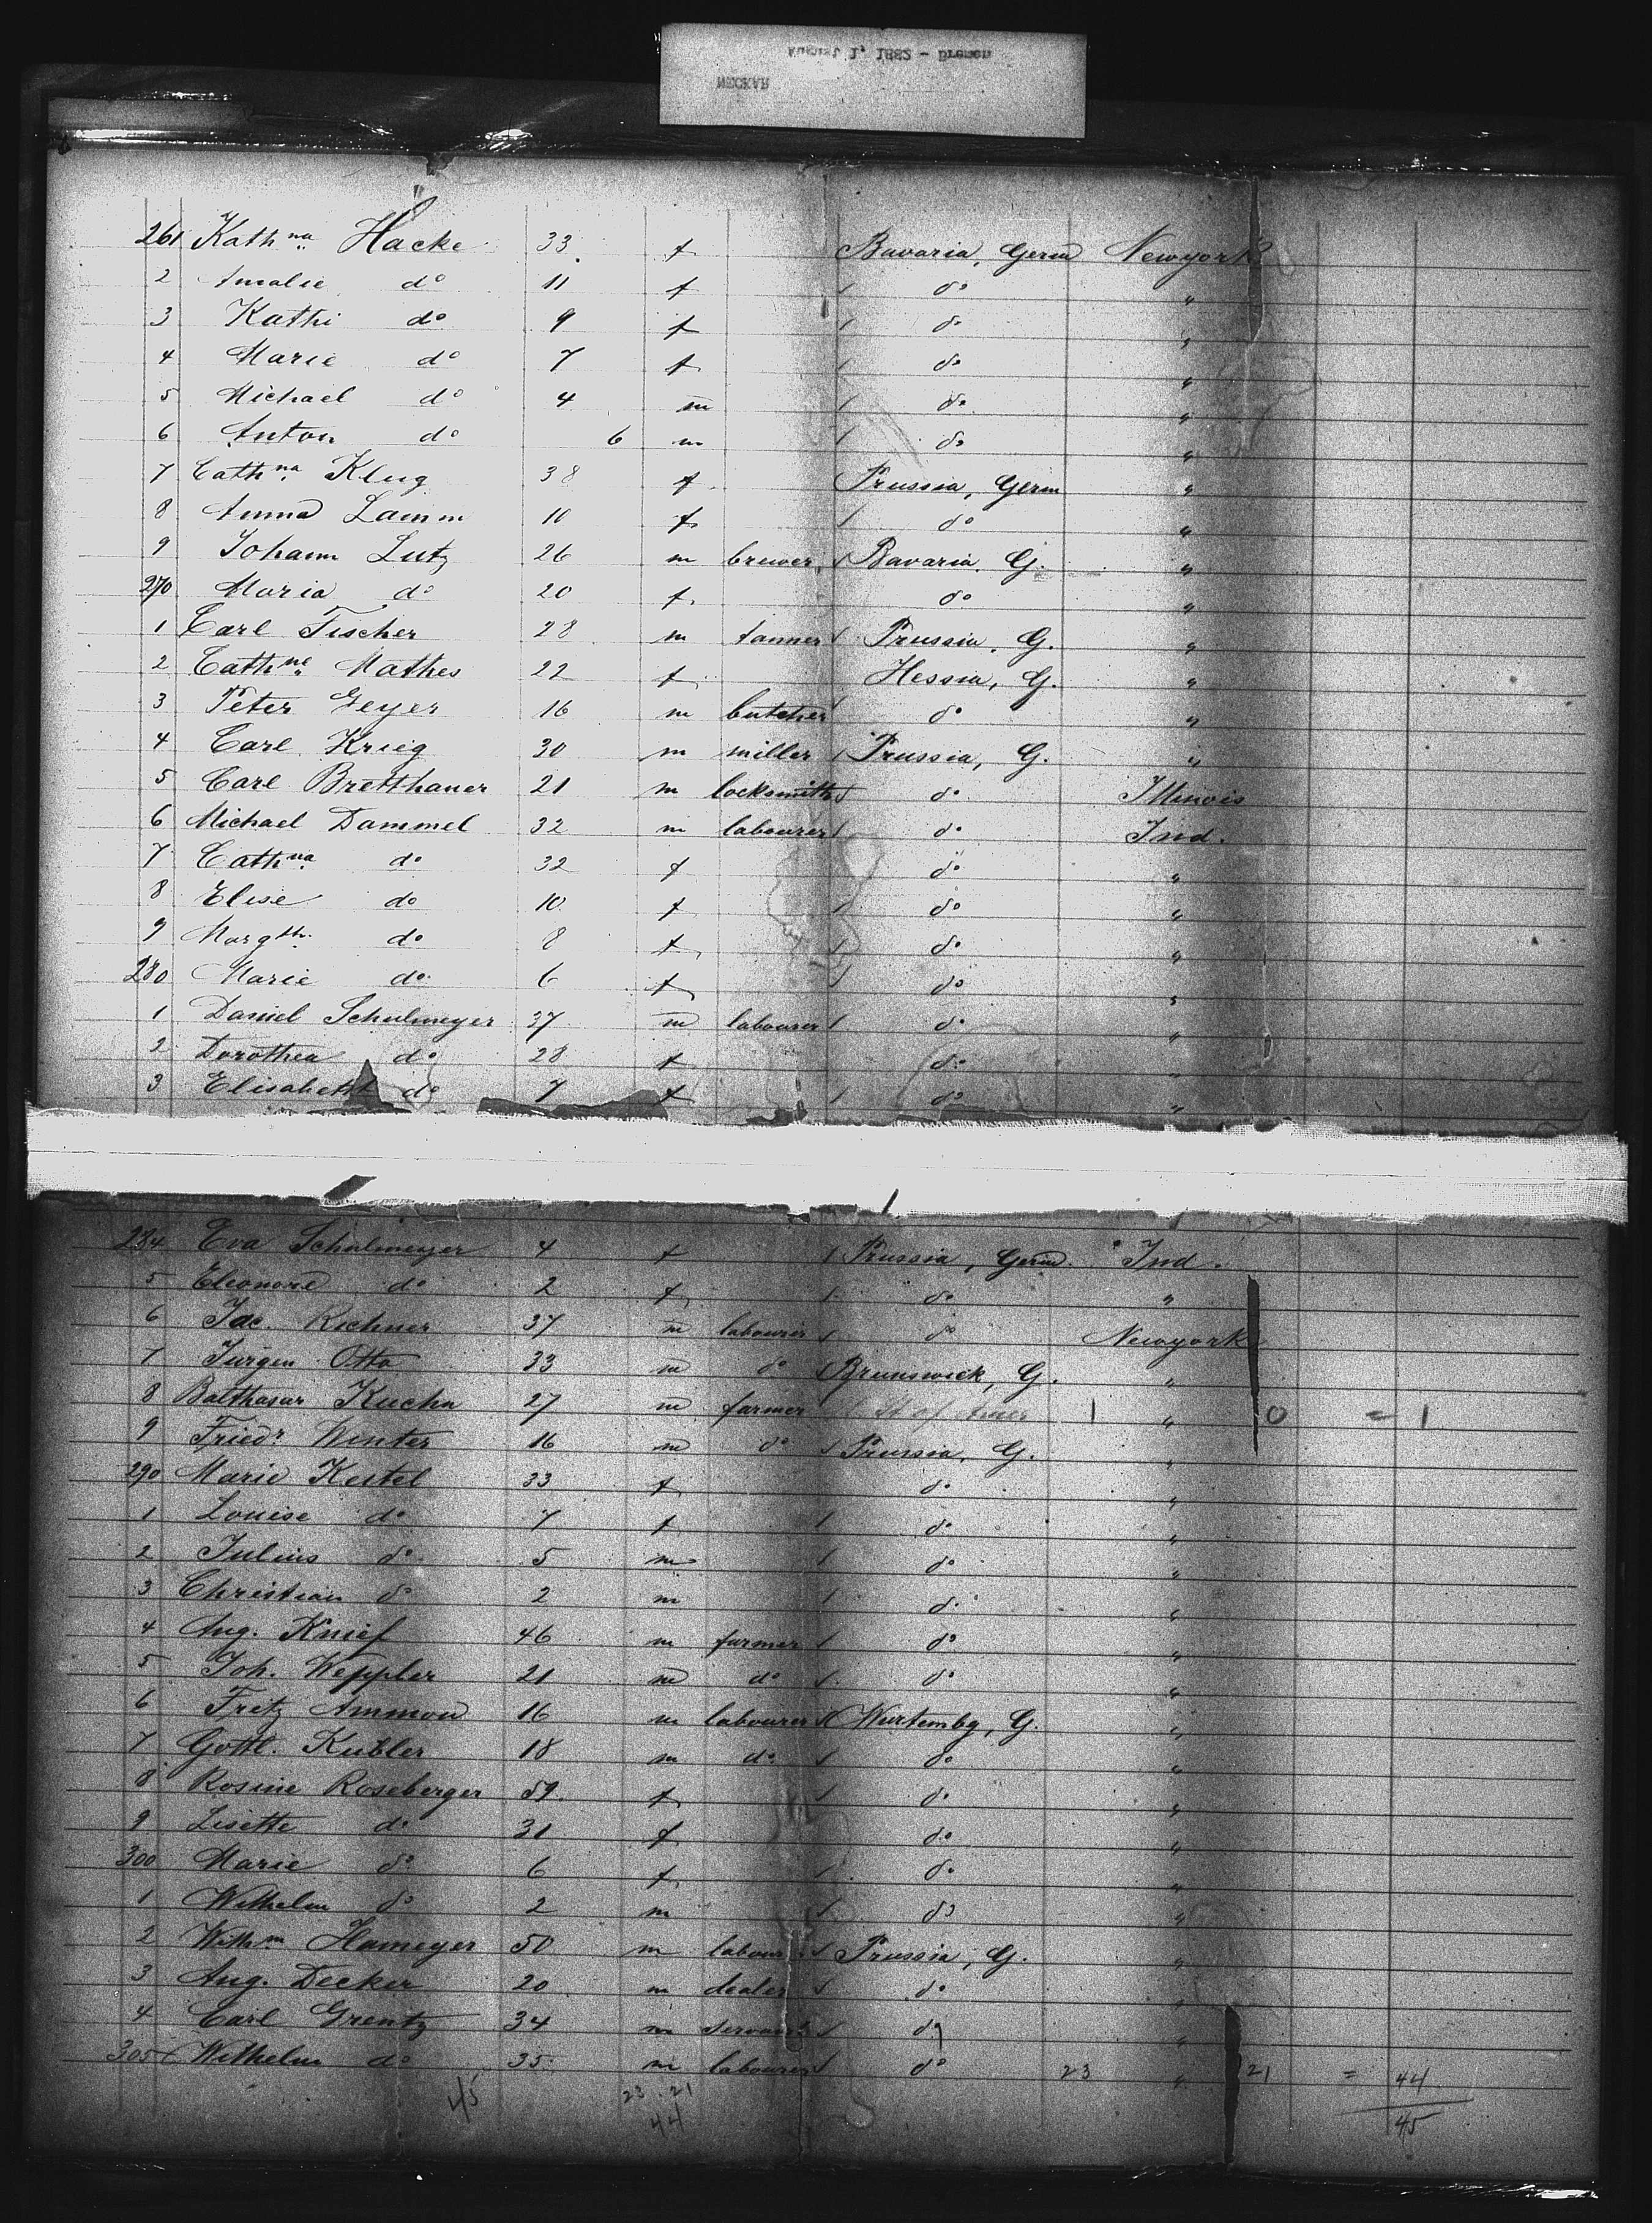 August 1, 1882 - Bremen
NECKAR
261 Kathna Hacke 33 f Bavaria, Germ Newyork
2 Amalie do 11 f / do "
3 Kathi do 9 f / do "
4 Marie do 7 f / do "
5 Michael do 4 m / do "
6 Anton do 6 m / do "
7 Cathna Klug 38 f Prussia, Germ "
8 Anna Lamm 10 f / do "
9 Johann Lutz 26 m brewer / Bavaria, G. "
270 Maria do 20 f do "
1 Carl Fischer 28 m tanner / Prussia, G. "
2 Cathne Mathes 22 f Hessia, G. "
3 Peter Geyer 16 m butcher / do "
4 Carl Krieg 30 m miller / Prussia, G. "
5 Carl Bretthauer 21 m locksmith / do Illinois
6 Michael Dammel 32 m labourer / do Ind.
7 Cathna do 32 f do "
8 Elise do 10 f / do "
9 Margth do 8 f / do "
280 Marie do 6 f / do "
1 Daniel Schulmeyer 37 m labourer / do "
2 Dorothea do 28 f do "
3 Elisabeth do 7 f / do "
284 Eva Schulmeyer 4 f / Prussia, Germ. Ind.
5 Eleonore do 2 f / do "
6 Jac. Richner 37 m labourer / do Newyork
7 Jurgen Otto 33 m do / Brunswick, G. "
8 Balthasar Kuehn 27 m farmer / St of Amer 1 " 0 = 1
9 Friedr Winter 16 m do / Prussia, G. "
290 Marie Kestel 33 f do "
1 Louise do 7 f / do "
2 Julius do 5 m / do "
3 Christian do 2 m / do "
4 Aug. Knief 46 m farmer / do "
5 Joh. Weppler 21 m do / do "
6 Fritz Ammon 16 m labourer / Wurtembg, G. "
7 Gottl. Kubler 18 m do / do "
8 Rosine Roseberger 59 f / do "
9 Lisette do 31 f do "
300 Marie do 6 f / do "
1 Wilhelm do 2 m / do "
2 Wilhm Hameyer 50 m labour / Prussia, G. "
3 Aug. Decker 20 m dealer / do "
4 Carl Grentz 34 m servant / do "
305 Wilhelm do 35 m labourer / do 23 " 21 = 44
45 23 . 21 45
44